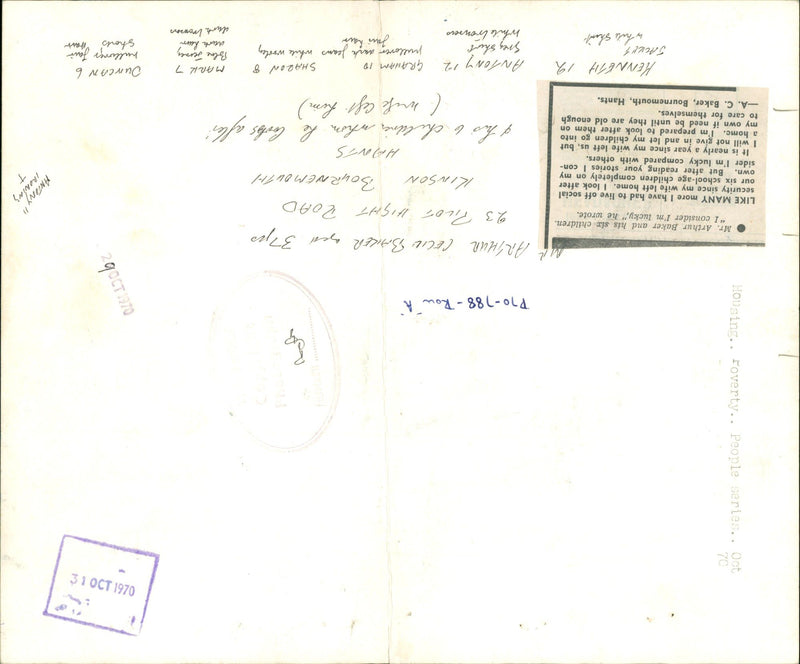 Mr. Arthur Baker and his six children.
"I consider I'm lucky," he wrote.
LIKE MANY more I have had to live off social
security since my wife left home. I look after
our six school-age children completely on my
own. But after reading your stories I con-
sider I'm lucky compared with others.
It is nearly a year since my wife left us, but
I will not give in and let my children go into
a home. I'm prepared to look after them on
my own if need be until they are old enough
to care for themselves.
—A. C. Baker, Bournemouth, Hants.
P70-788 - Row A
MR ARTHUR CECIL BAKER aged 37 yrs
23 PILOT HIGHT ROAD
KINSON BOURNEMOUTH
HANTS
6 children whom he looks after
(wife left him)
KENNETH 12
white shirt
ANTONY 12
Grey shirt
white trousers
GRAHAM 10
pullover dark jeans
fair hair
SHARON 8
MARK 7
dark hair
dark trousers
DUNCAN 6
fair
hair
shorts
29 OCT 1970
31 OCT 1970
Housing.. Poverty.. People series.. Oct
70